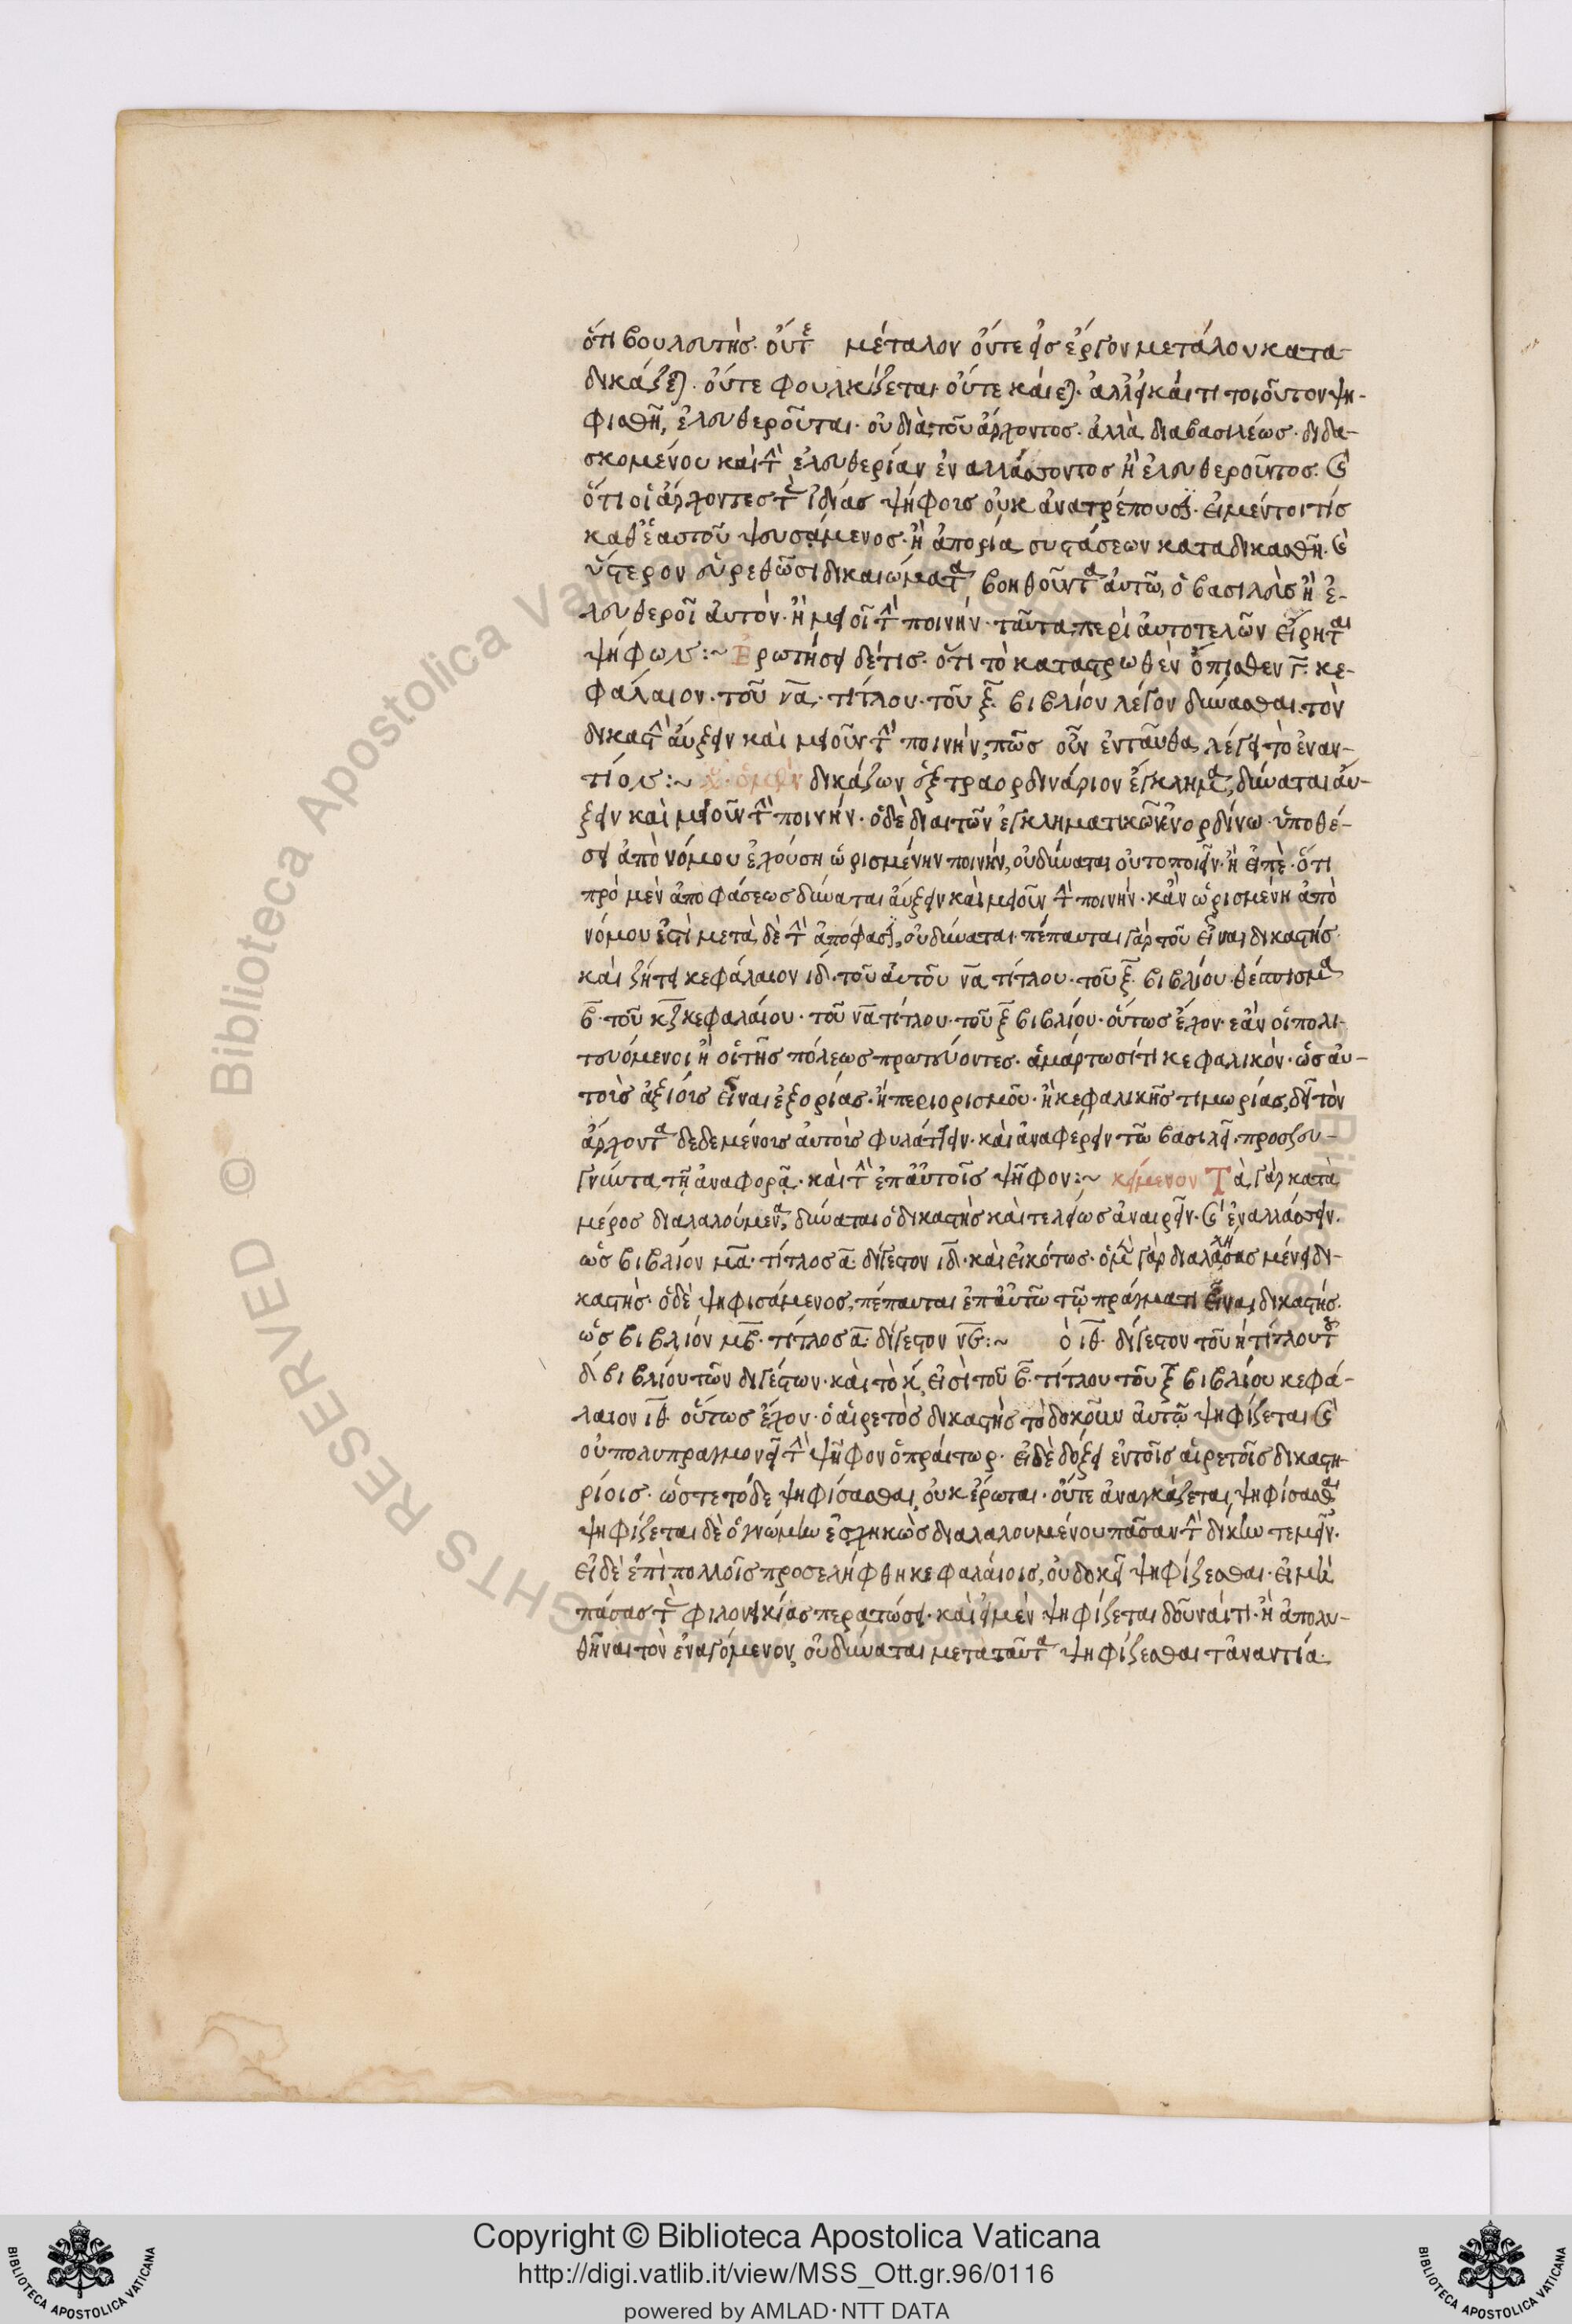 ὅτι βουλευτὴς. οὔτε μέταλον οὔτε εἰς ἔργον μετάλου κατα-
δικάζεται. οὔτε φουλκίζεται. οὔτε καίεται. ἀλλ' εἰ καί τι τοιοῦτον ψη-
φισθῆ, ἐλευθεροῦται. οὐ διὰ τοῦ ἄρχοντος. ἀλλὰ διαβασιλέως. διδα-
σκομένου καὶ τὴν ἐλευθερίαν ἐναλλάσσοντος ἢ ἐλευθεροῦντος. καὶ
ὅτι οἱ ἄρχοντες τὰς ἰδίας ψήφους οὐκ ἀνατρέπουσι. εἰ μέντοι τίς
καθ' ἑαυτοῦ ψευσάμενος. ἢ ἀπορία συστάσεων καταδικασθῆ. καὶ
ὕστερον εὑρεθῶσι δικαιώματα βοηθοῦντα αὐτῶ, ὁ βασιλεὺς ἢ ἐ-
λευθεροῖ αὐτὸν. ἢ μειοῖ τὴν ποινήν. ταῦτα περὶ αὐτοτελῶν εἴρηται
ψήφων:~ Ἐρωτήσει δέ τις. ὅτι τὸ καταστρωθὲν ὄπισθεν γ. κε-
φάλαιον. τοῦ να. τίτλου. τοῦ ξ. βιβλίου λέγον δύνασθαι τὸν
δικαστὴν αὔξειν καὶ μειοῦν τὴν ποινήν, πῶς οὖν ἐνταῦθα λέγει τὸ ἐναν-
τίον:~ ὁ μὲν δικάζων ἐξτραορδινάριον ἔγκλημα, δύναται αὔ-
ξειν καὶ μειοῦν τὴν ποινήν. ὁ δὲ διαιτῶν ἐγκληματικῶν ἐν ορδίνω. ὑποθέ-
σει ἀπὸ νόμου ἐχούση ὡρισμένην ποινήν, οὐ δύναται οὐτο ποιεῖν. ἢ εἰπὲ. ὅτι
πρὸ μὲν ἀποφάσεως δύναται αὔξειν καὶ μειοῦν τὴν ποινήν. κἂν ὡρισμένη ἀπὸ
νόμου ἐστὶ μετὰ δὲ τὴν ἀπόφασιν, οὐ δύναται. πέπαυται γὰρ τοῦ εἶναι δικαστής.
καὶ ζήτει κεφάλαιον ιδ. τοῦ αὐτοῦ να τίτλου. τοῦ ξ. βιβλίου. θέμα
β. τοῦ κζ κεφαλαίου. τοῦ να τίτλου. τοῦ ξ βιβλίου. οὕτως ἔχον. εὰν οἱ πολι-
τευόμενοι ἢ οἱ τῆς πόλεως πρωτεύοντες. ἁμάρτωσί τι κεφαλικὸν. ὡς αυ-
τοὺς ἀξίους εἶναι ἐξορίας. ἢ περιορισμοῦ. ἢ κεφαλικῆς τιμωρίας, δεῖ τὸν
ἄρχοντα δεδεμένους αὐτοὺς φυλάττειν. καὶ ἀναφέρειν τῶ βασιλεῖ. προσζευ-
γνύντα τῆ ἀναφορᾶ. καὶ τὴν ἐπ' αὐτοῖς ψῆφον:~ κείμενον Τὰ γὰρ κατὰ
μέρος διαλαλούμενα, δύναται ὁ δικαστὴς καὶ τελείως ἀναιρεῖν. καὶ ἐναλλάσσειν.
ὡς βιβλίον μα. τίτλος α. δίγεστον ιδ. καὶ εἰκότως. ὁ μὲν γὰρ διαλαλήσας μένει δι-
καστὴς. ὁ δὲ ψηφισάμενος, πέπαυται ἐπ' αὐτῶ τῶ πράγματι εἶναι δικαστής.
ὡς βιβλίον μβ. τίτλος α. δίγεστον νβ:~ ὁ ιθ. δίγεστον τοῦ ή τίτλου τοῦ
δ βιβλίου τῶν διγέστων. καὶ τὸ κ, εἰσὶ τοῦ β. τίτλου τοῦ ξ βιβλίου κεφά-
λαιον ιθ. οὕτως ἔχον. ὁ αἱρετὸς δικαστὴς τὸ δοκοῦν αὐτῶ ψηφίζεται καὶ
οὐ πολυπραγμονεῖ τὴν ψῆφον ὁ πραίτωρ. εἰ δὲ δόξει ἐν τοῖς αἱρετοῖς δικαστη-
ρίοις. ὥστε τόδε ψηφίσασθαι, οὐκ ἔρωται. οὔτε ἀναγκάζεται ψηφίσασθαι
ψηφίζεται δὲ ὁ γνώμην ἐσχηκὼς διαλαλουμένου πᾶσαν τὴν δίκην τεμεῖν.
εἰ δὲ ἐπὶ πολλοῖς προσελήφθη κεφαλαίοις, οὐ δοκεῖ ψηφίζεσθαι. εἰ μὴ
πάσας τὰς φιλονεικίας περατώσει. καὶ εἰ μὲν ψηφίζεται δοῦναί τι. ἢ ἀπολυ-
θῆναι τὸν ἐναγόμενον, οὐ δύναται μετα ταῦτα ψηφίζεσθαι τἀναντία.
Copyright © Biblioteca Apostolica Vaticana
http://digi.vatlib.it/view/MSS_Ott.gr.96/0116
powered by AMLAD·NTT DATA